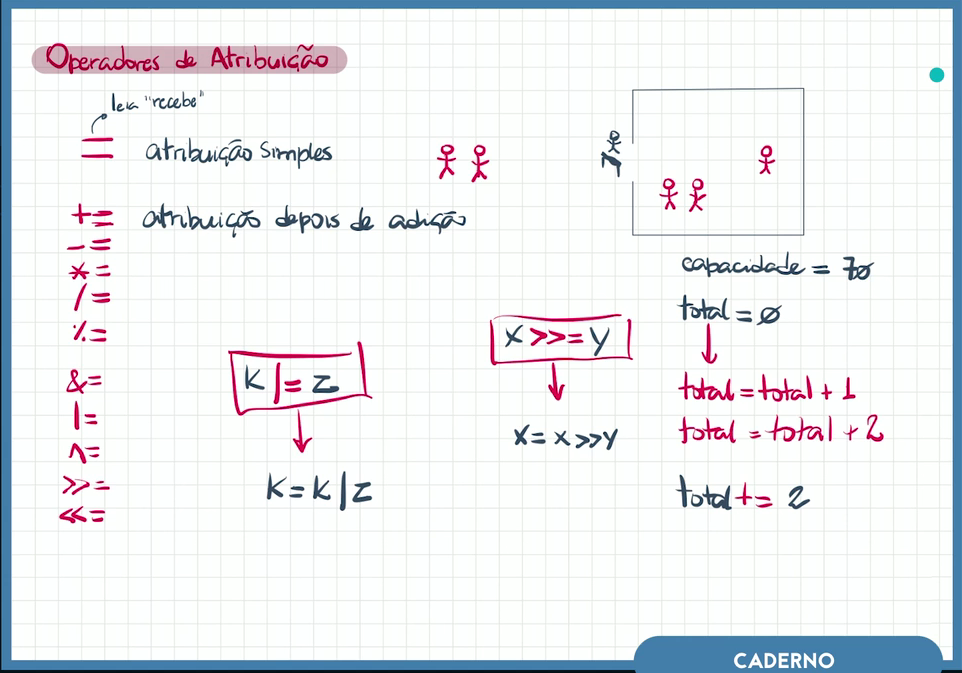 Operadores de Atribuição
leia "recebe"
= atribuição simples
+= atribuição depois de adição
-=
*=
/=
%=
&=
|=
^=
>>=
<<=
K |= Z
K = K | Z
X >>= Y
X = X >> Y
capacidade = 70
total = 0
total = total + 1
total = total + 2
total += 2
CADERNO